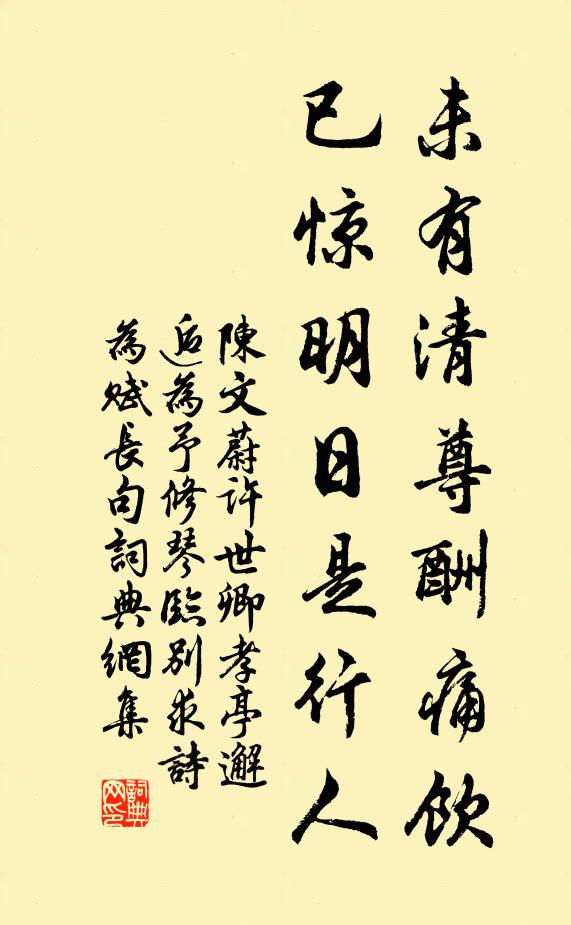 未有清尊酬痛飲
已惊明日是行人
陳文蔚許世卿孝亭邂
逅為予修琴臨別求詩
為賦長句詞典網集
詞典网印